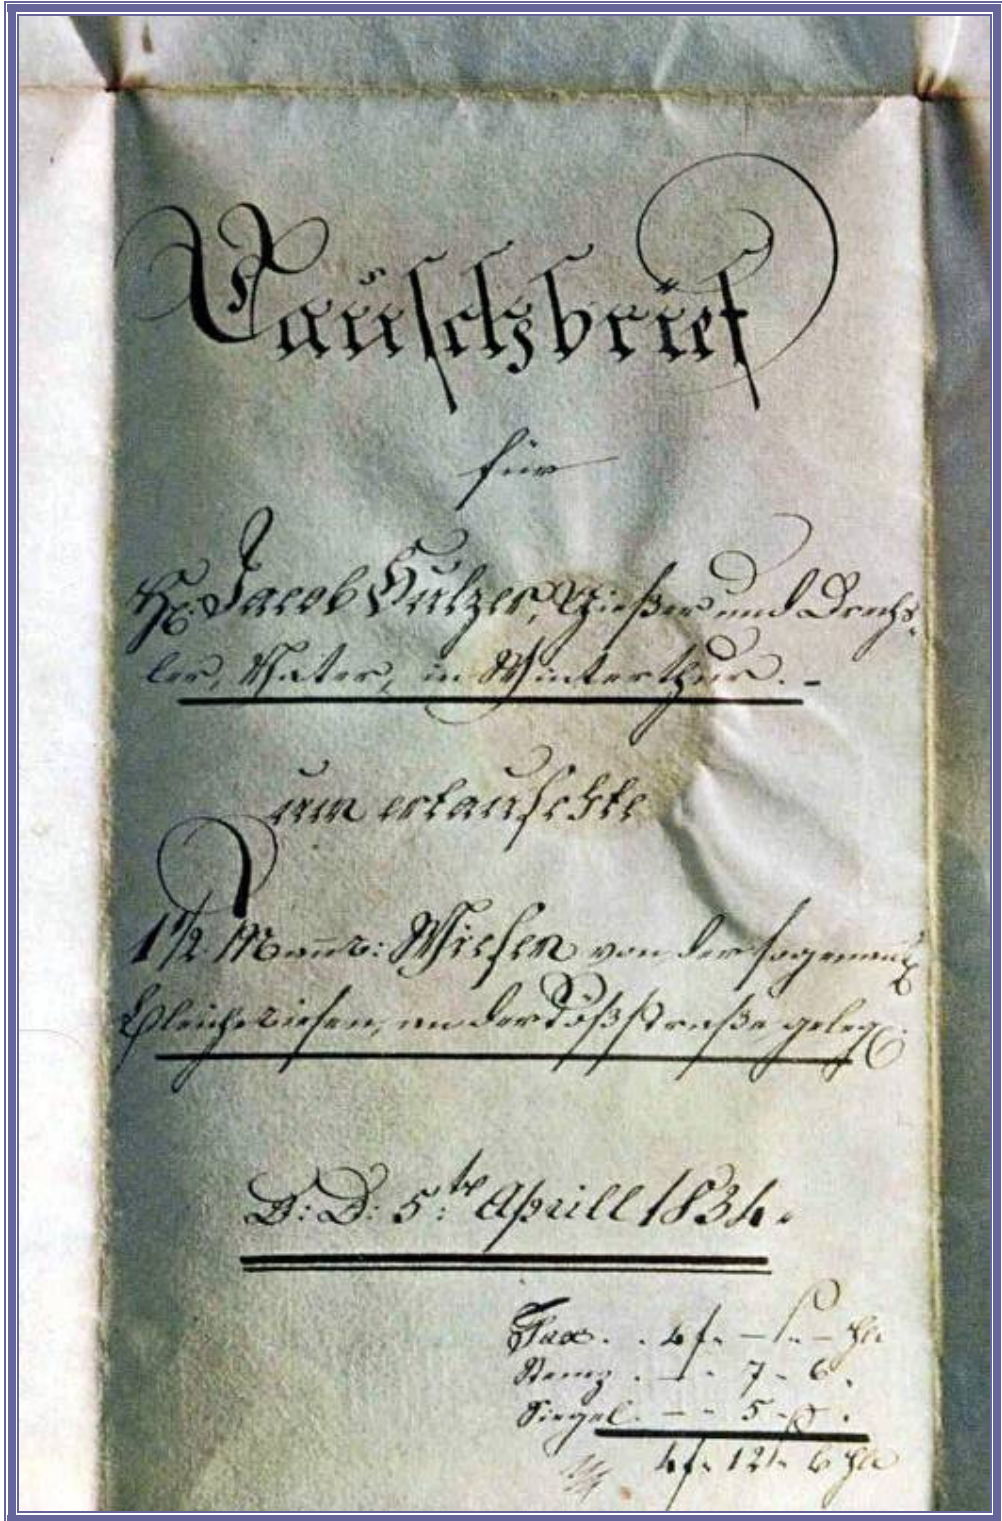 Tauschbrief
für
Hr. Jacob Sulzer, Gießer und Drechs-
ler, Vater, in Winterthur. –
um ertauschte
1½ Mannw: Wiesen von der sogenannt.
Bleichewiesen, an der Tößstraße geleg.
D: D: 5.ten Aprill 1834.
Tax. . 4 f. – ß. – Hlr
. – . 7 . 6 .
Siegel. – . 5 . – .
4 f. 12 ß. 6 Hlr